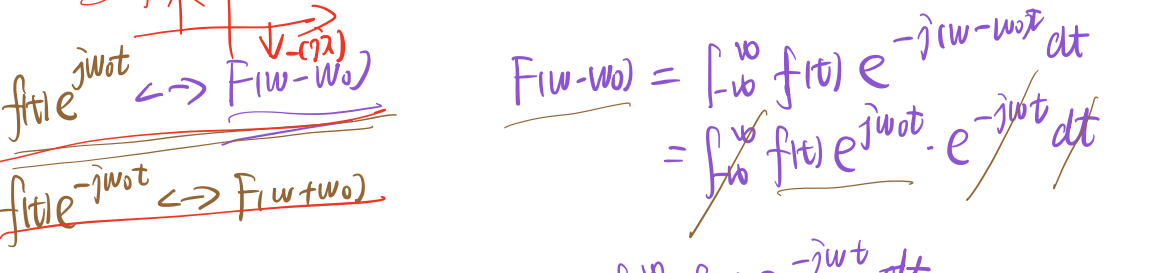 -(jλ)
f(t)e^{jw₀t} <-> F(w-w₀)
f(t)e^{-jw₀t} <-> F(w+w₀)
F(w-w₀) = ∫_{-∞}^{∞} f(t) e^{-j(w-w₀)t} dt
= ∫_{-∞}^{∞} f(t) e^{jw₀t} · e^{-jwt} dt
e^{-jwt} dt